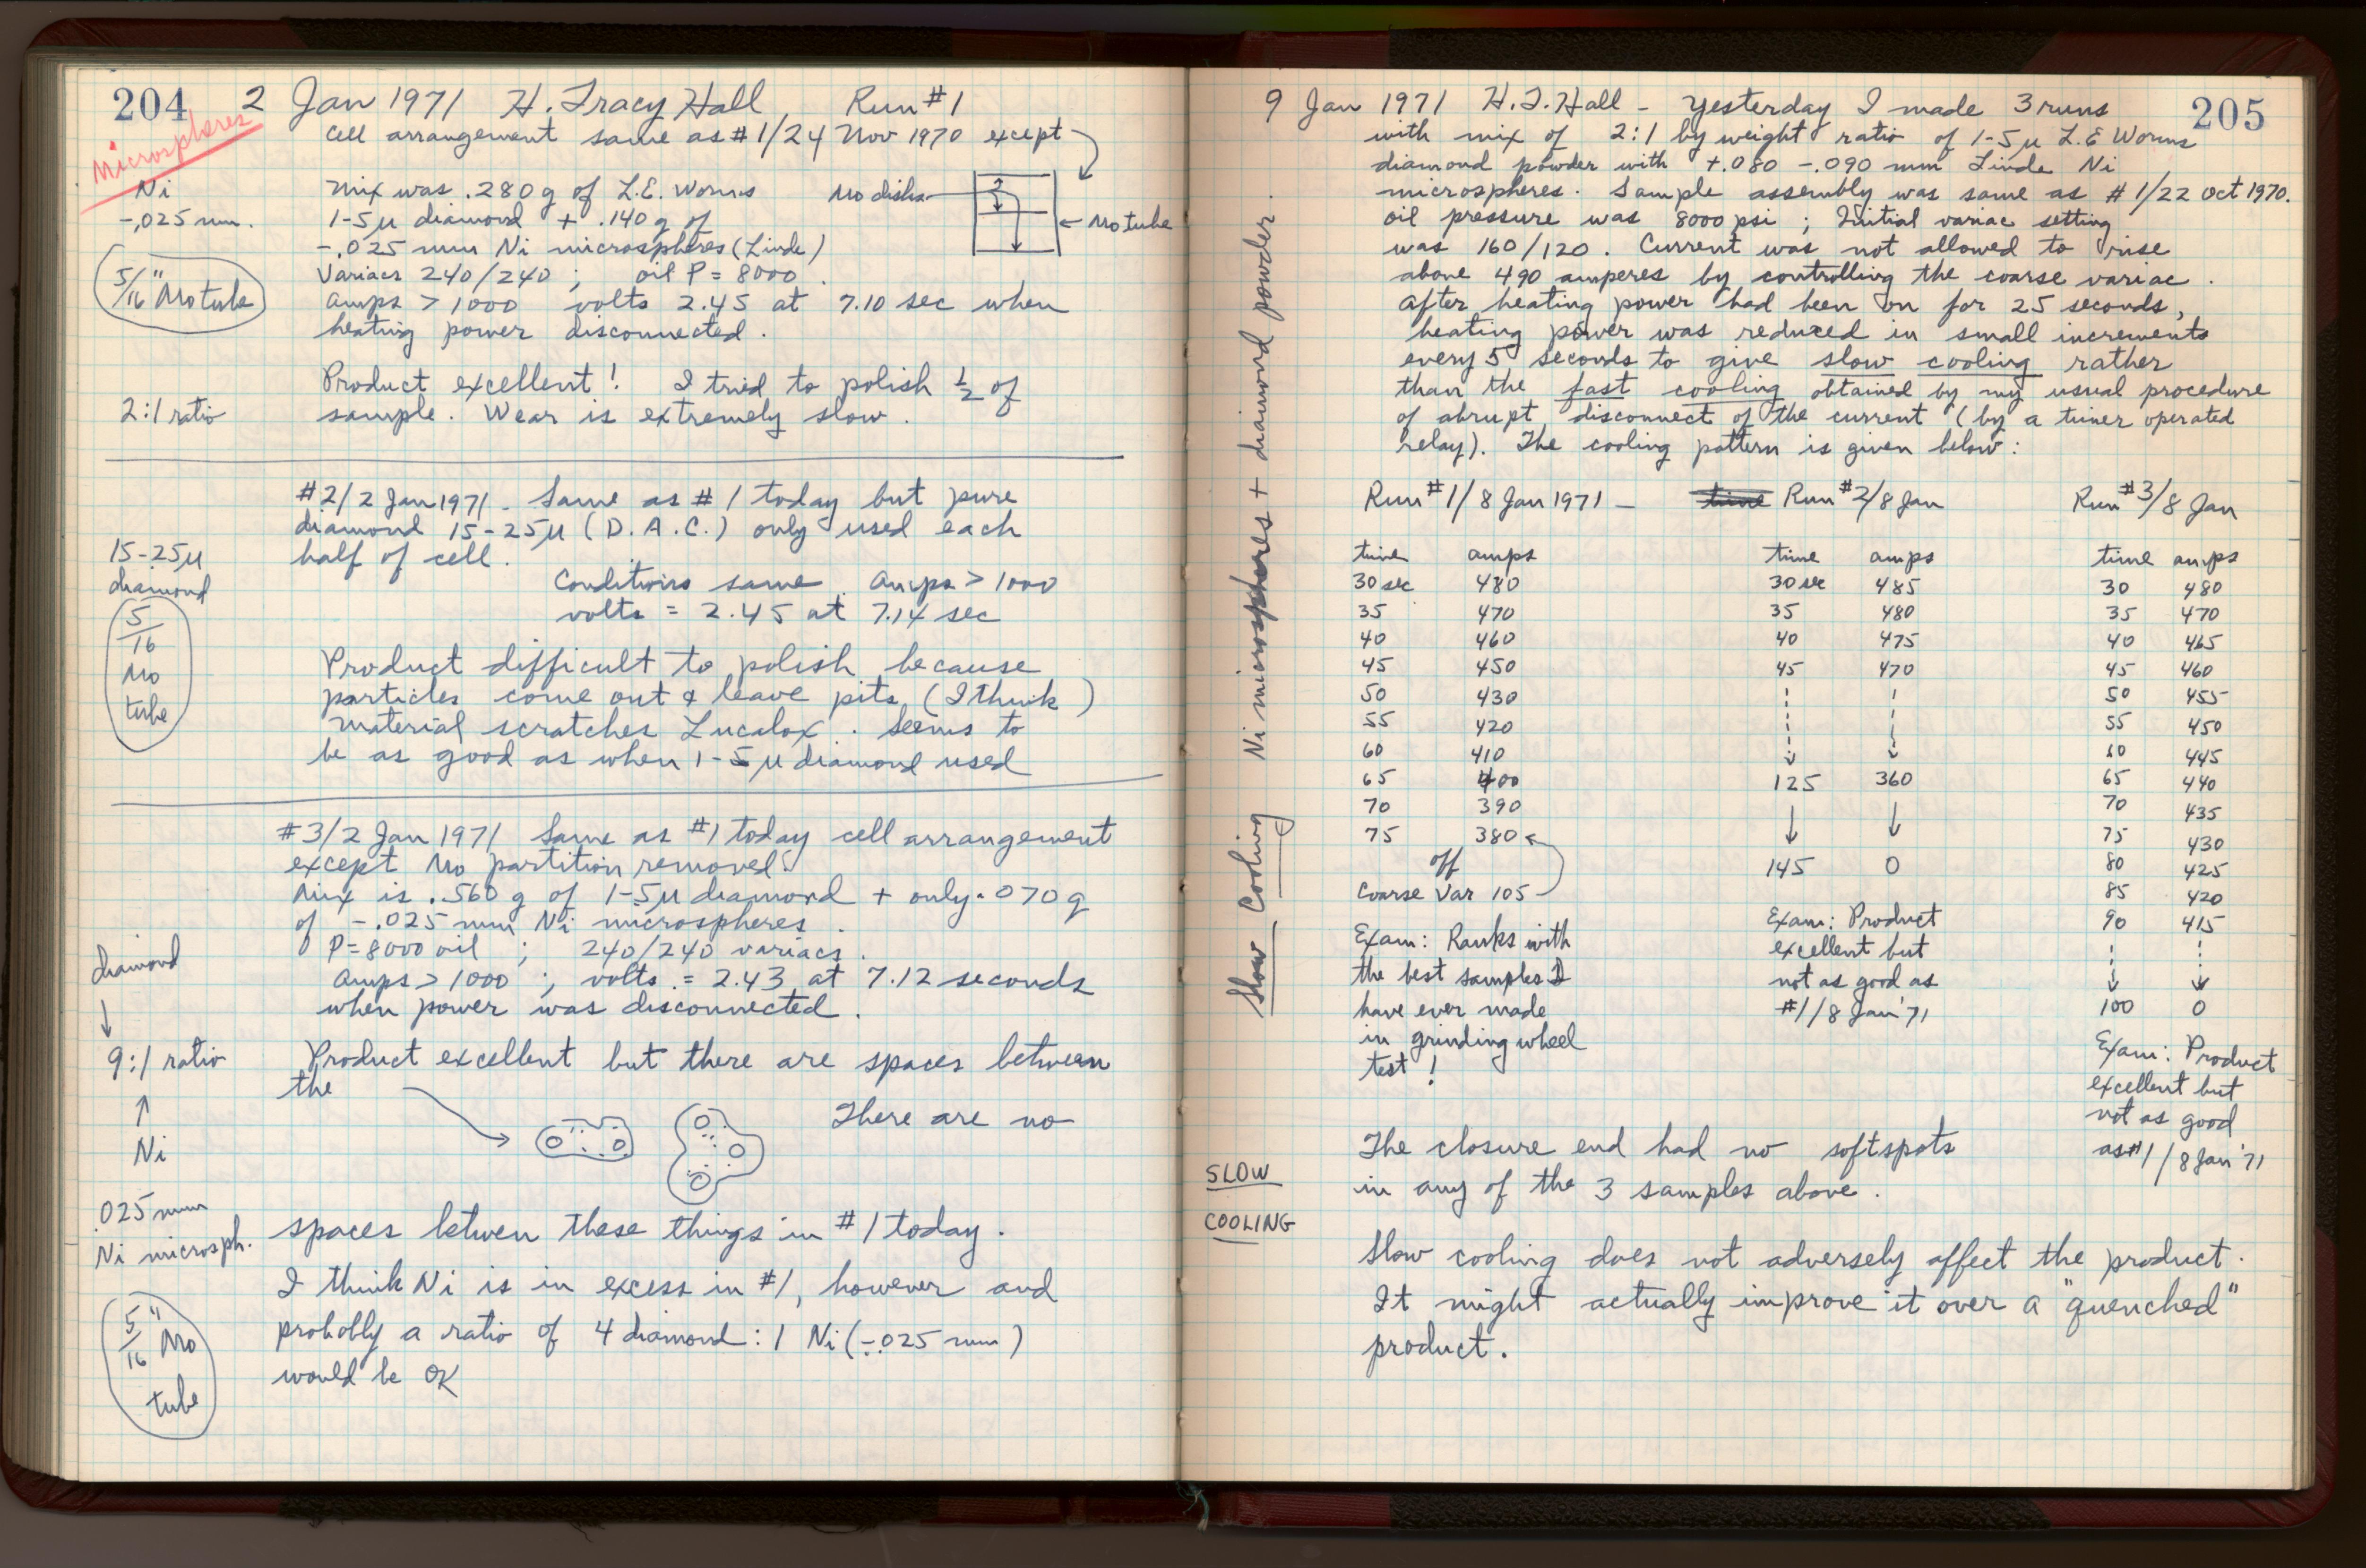 204 2 Jan 1971 H. Tracy Hall Run #1
Microspheres
Cell arrangement same as #1/24 Nov 1970 except
Ni
-.025 mm.
Mix was .280 g of L.E. Worms
Mo disks
1-5µ diamond + .140 g of
← Mo tube
-.025 mm Ni microspheres (Linde)
5/16" Mo tube
Variacs 240/240 ; oil P = 8000.
amps > 1000 volts 2.45 at 7.10 sec when
heating power disconnected.
Product excellent! I tried to polish ½ of
2:1 ratio
sample. Wear is extremely slow.
#2/2 Jan 1971 - Same as #1 today but pure
diamond 15-25µ (D.A.C.) only used each
half of cell.
15-25µ
diamond
Conditions same. Amps > 1000
volts = 2.45 at 7.14 sec
5/16
Mo
tube
Product difficult to polish because
particles come out & leave pits (I think)
material scratches Lucalox. Seems to
be as good as when 1-5µ diamond used
#3/2 Jan 1971 Same as #1 today cell arrangement
except Mo partition removed.
Mix is .560 g of 1-5µ diamond + only .070 g
of -.025 mm Ni microspheres.
P = 8000 oil ; 240/240 variacs.
amps > 1000 ; volts = 2.43 at 7.12 seconds
when power was disconnected.
diamond
↓
9:1 ratio
↑
Ni
Product excellent but there are spaces between
the
There are no
.025 mm
Ni microsph.
spaces betwen these things in #1 today.
I think Ni is in excess in #1, however and
probolly a ratio of 4 diamond : 1 Ni (-.025 mm)
would be OK
5/16" Mo
tube
9 Jan 1971 H.T. Hall - Yesterday I made 3 runs 205
with mix of 2:1 by weight ratio of 1-5µ L.E Worms
diamond powder with +.080 -.090 mm Linde Ni
microspheres. Sample assembly was same as #1/22 Oct 1970.
oil pressure was 8000 psi ; Initial variac setting
was 160/120. Current was not allowed to rise
above 490 amperes by controlling the coarse variac.
After heating power had been on for 25 seconds,
heating power was reduced in small increments
every 5 seconds to give slow cooling rather
than the fast cooling obtained by my usual procedure
of abrupt disconnect of the current (by a timer operated
relay). The cooling pattern is given below:
Slow Cooling Ni microspheres + diamond powder.
Run #1/8 Jan 1971 - time Run #2/8 Jan Run #3/8 Jan
time amps time amps time amps
30 sec 480 30 sec 485 30 480
35 470 35 480 35 470
40 460 40 475 40 465
45 450 45 470 45 460
50 430 50 455
55 420 55 450
60 410 60 445
65 400 125 360 65 440
70 390 70 435
75 380 75 430
off 145 0 80 425
Coarse Var 105 85 420
90 415
100 0
Exam: Ranks with
the best samples I
have ever made
in grinding wheel
test!
Exam: Product
excellent but
not as good as
#1/8 Jan '71
Exam: Product
excellent but
not as good
as #1/8 Jan '71
The closure end had no softspots
in any of the 3 samples above.
SLOW
COOLING
Slow cooling does not adversely affect the product.
It might actually improve it over a "quenched"
product.